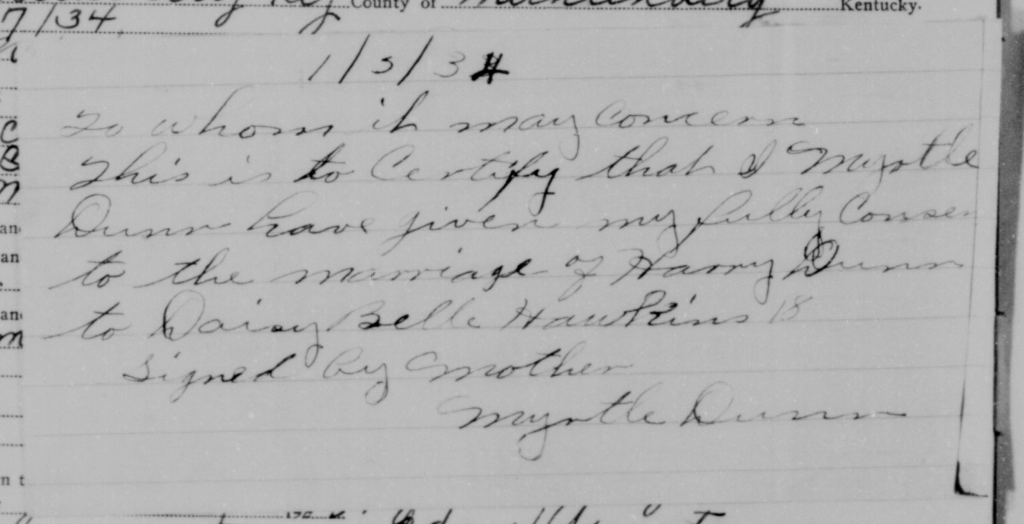 County of Muhlenberg Kentucky.
7/34.
1/5/34
To whom it may concern
This is to Certify that I Myrtle
Dunn have given my fully Conse
to the marriage of Harry Dunn
to Daisy Belle Hawkins 18
Signed by Mother
Myrtle Dunn